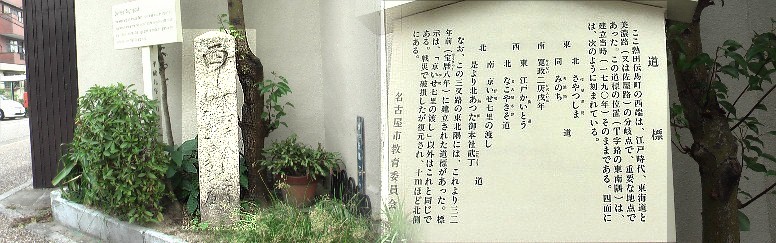 道標
ここ熱田伝馬町の西端は、江戸時代、東海道と
美濃路（又は佐屋路）の分岐点で、重要な地点で
あった。この道標の位置（丁字路の東南隅）は、
建立当時（一七九〇年）そのままである。四面に
は、次のように刻まれている。
東 北 さやつしま
同 みのち 道
南 寛政二庚戌年
西 東 江戸かいとう
北 なこやきそ道
北 南 京いせ七里の渡し
是より北あつた御本社弐丁 道
なお、この三叉路の東北隅には、これより三二
年前（宝暦八年）に建立された道標があった。標
示は、「京いせ七里の渡し」以外はこれと同じで
ある。戦災で破損したが復元され、十mほど北側
にある。
名古屋市教育委員会
西